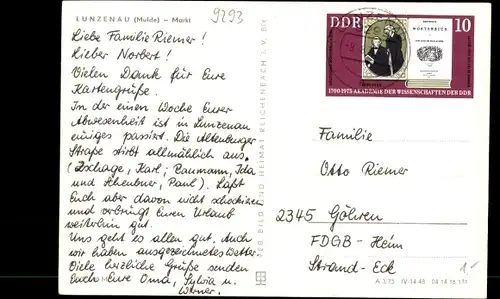 LUNZENAU (Mulde) – Markt
9293
Liebe Familie Riemer!
Lieber Norbert!
Vielen Dank für Eure
Kartengrüße.
In der einen Woche Euer
Abwesenheit ist in Lunzenau
einiges passiert. Die Altenburger
Straße stirbt allmählich aus.
(Zschage, Karl; Naumann, Ida
und Scheubner, Paul). Laßt
Euch aber davon nicht schockieren
und verbringt Euren Urlaub
weiterhin gut.
Uns geht es allen gut. Auch
wir haben ausgezeichnetes Wetter.
Viele herzliche Grüße senden
Euch Eure Oma, Sylvia u.
Werner.
VEB BILD UND HEIMAT REICHENBACH I. V.
DDR
10
WÖRTERBUCH
1700-1975 AKADEMIE DER WISSENSCHAFTEN DER DDR
Familie
Otto Riemer
2345 Göhren
FDGB-Heim
Strand-Eck
A 3/73 IV-14-48
1-